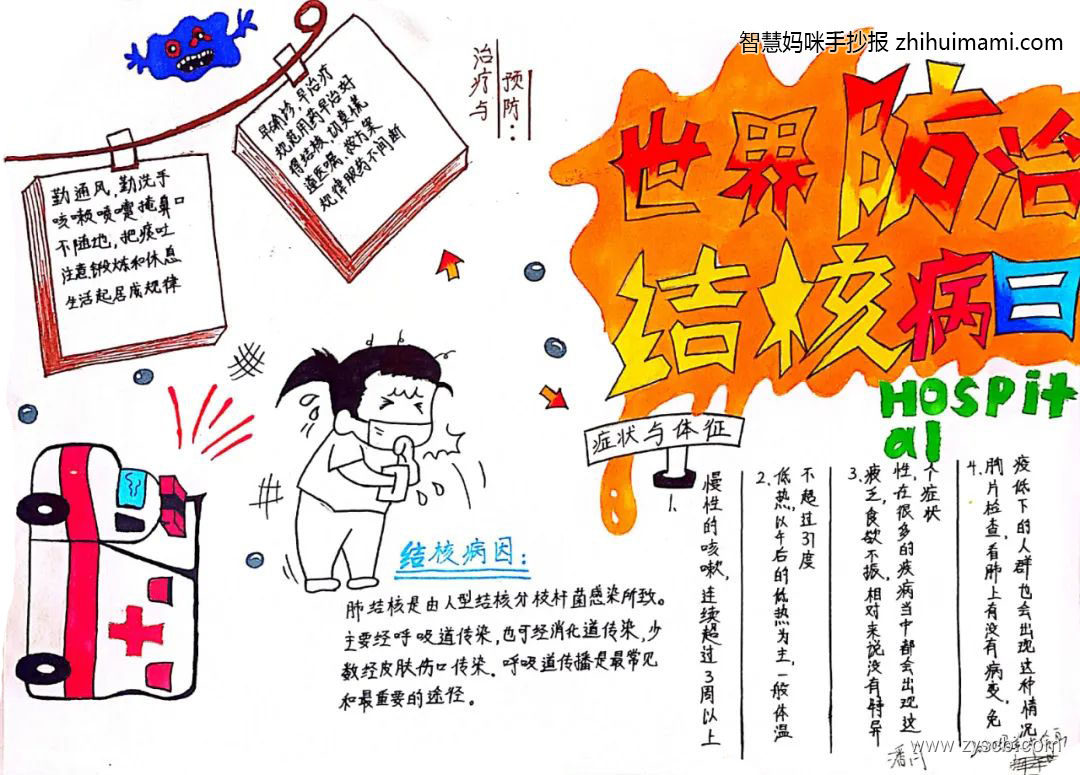 智慧妈咪手抄报 zhihuimami.com
治疗与
预防：
早确诊，早治疗
规范用药早治好
得结核，切莫慌
遵医嘱，按方案
规律服药不间断
勤通风，勤洗手
咳嗽喷嚏掩鼻口
不随地，把痰吐
注意锻炼和休息
生活起居成规律
世界防治
结核病日
HOSPit
al
症状与体征
1.
慢性的咳嗽，连续超过3周以上
2.低热，以午后的低热为主，一般体温
不超过37度
3.疲乏，食欲不振，相对来说没有特异
性，在很多的疾病当中都会出现这
个症状
4.胸片检查，看肺上有没有病变，免
疫低下的人群也会出现这种情况
结核病因：
肺结核是由人型结核分枝杆菌感染所致。
主要经呼吸道传染，也可经消化道传染，少
数经皮肤伤口传染。呼吸道传播是最常见
和最重要的途径。
www.zyscb.com